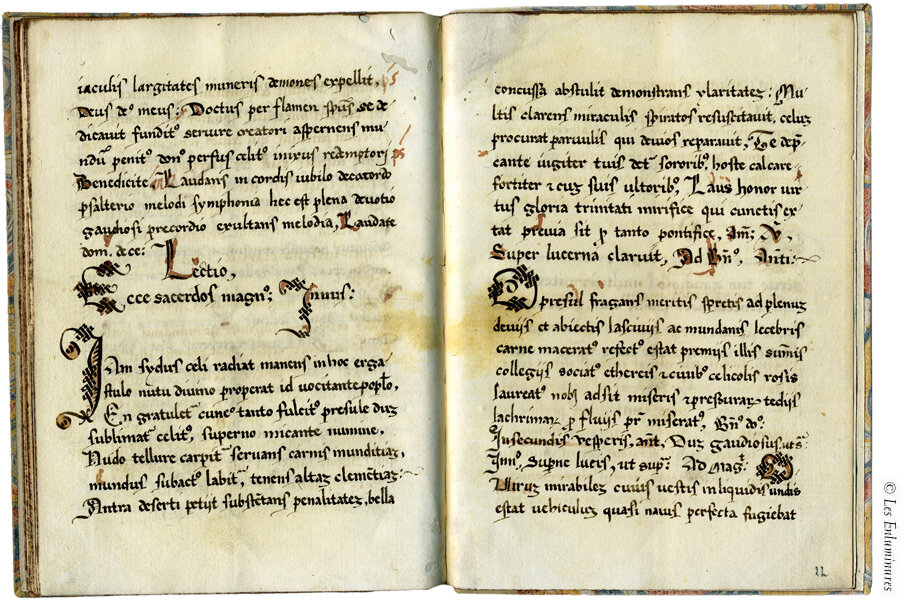 iaculis largitates muneris demones expellit, ps
Deus de9 meus: Doctus per flamen spūs se de
dicauit fundit9 seruire creatori aspernens mu
ndū penit9 don9 perfus9 celit9 inixus redemptori ps
Benedicite, Laudans in cordis iubilo decacordo
psalterio melodi symphonia hec est plena deuotio
gaudiosi precordio exultans melodia, Laudate
dom. de ce:
Lectio,
Ecce sacerdos magn9; Jnuus:
JAm sydus celi radiat manens in hoc erga
stulo nutu diuino properat id vocitante poplo,
En gratulet cunc9 tanto fulcit9 presule duz
sublimat celit9, superno micante numine,
Nudo tellure carpit seruans carnis munditiaz,
mundus subact9 labit, tenens altaz clemētiaz:
Antra deserti petijt substētans penalitatez, bella
concussa abstulit demonstrans claritatez: Mu
ltis clarens miraculis spiritos resuscitauit, celuz
procurat paruulis qui deuios reparauit, Te dep
cante iugiter tuis det sororib9 hoste calcare
fortiter & cuz suis ultorib9, Laus honor uir
tus gloria trinitati mirifice qui cunctis ex
tat preuia sit p tanto pontifice, Am; V,
Super lucernā claruit, Ad Bn9, Anti:
O presul fragans meritis spretis ad plenuz
deuijs et abiectis lasciuijs ac mundanis lecebris
carne macerat9 refect9 estat premijs illis summis
collegijs sociat9 ethereis & ciuib9 celicolis rosis
laureat9 nobis adsit miseris & pressuraz tedijs
lachrimaz p fluijs pr miserat9, Bn9 do9:
Jn secundis vesperis, ant, Duz gaudiosus, ut s
Jmn9, Supne lucis, ut sup: Ad Mag: O
Viruz mirabilez cuius uestis in liquidis undis
estat uehiculuz quasi nauis perfecta fugiebat
22
© Les Enluminures